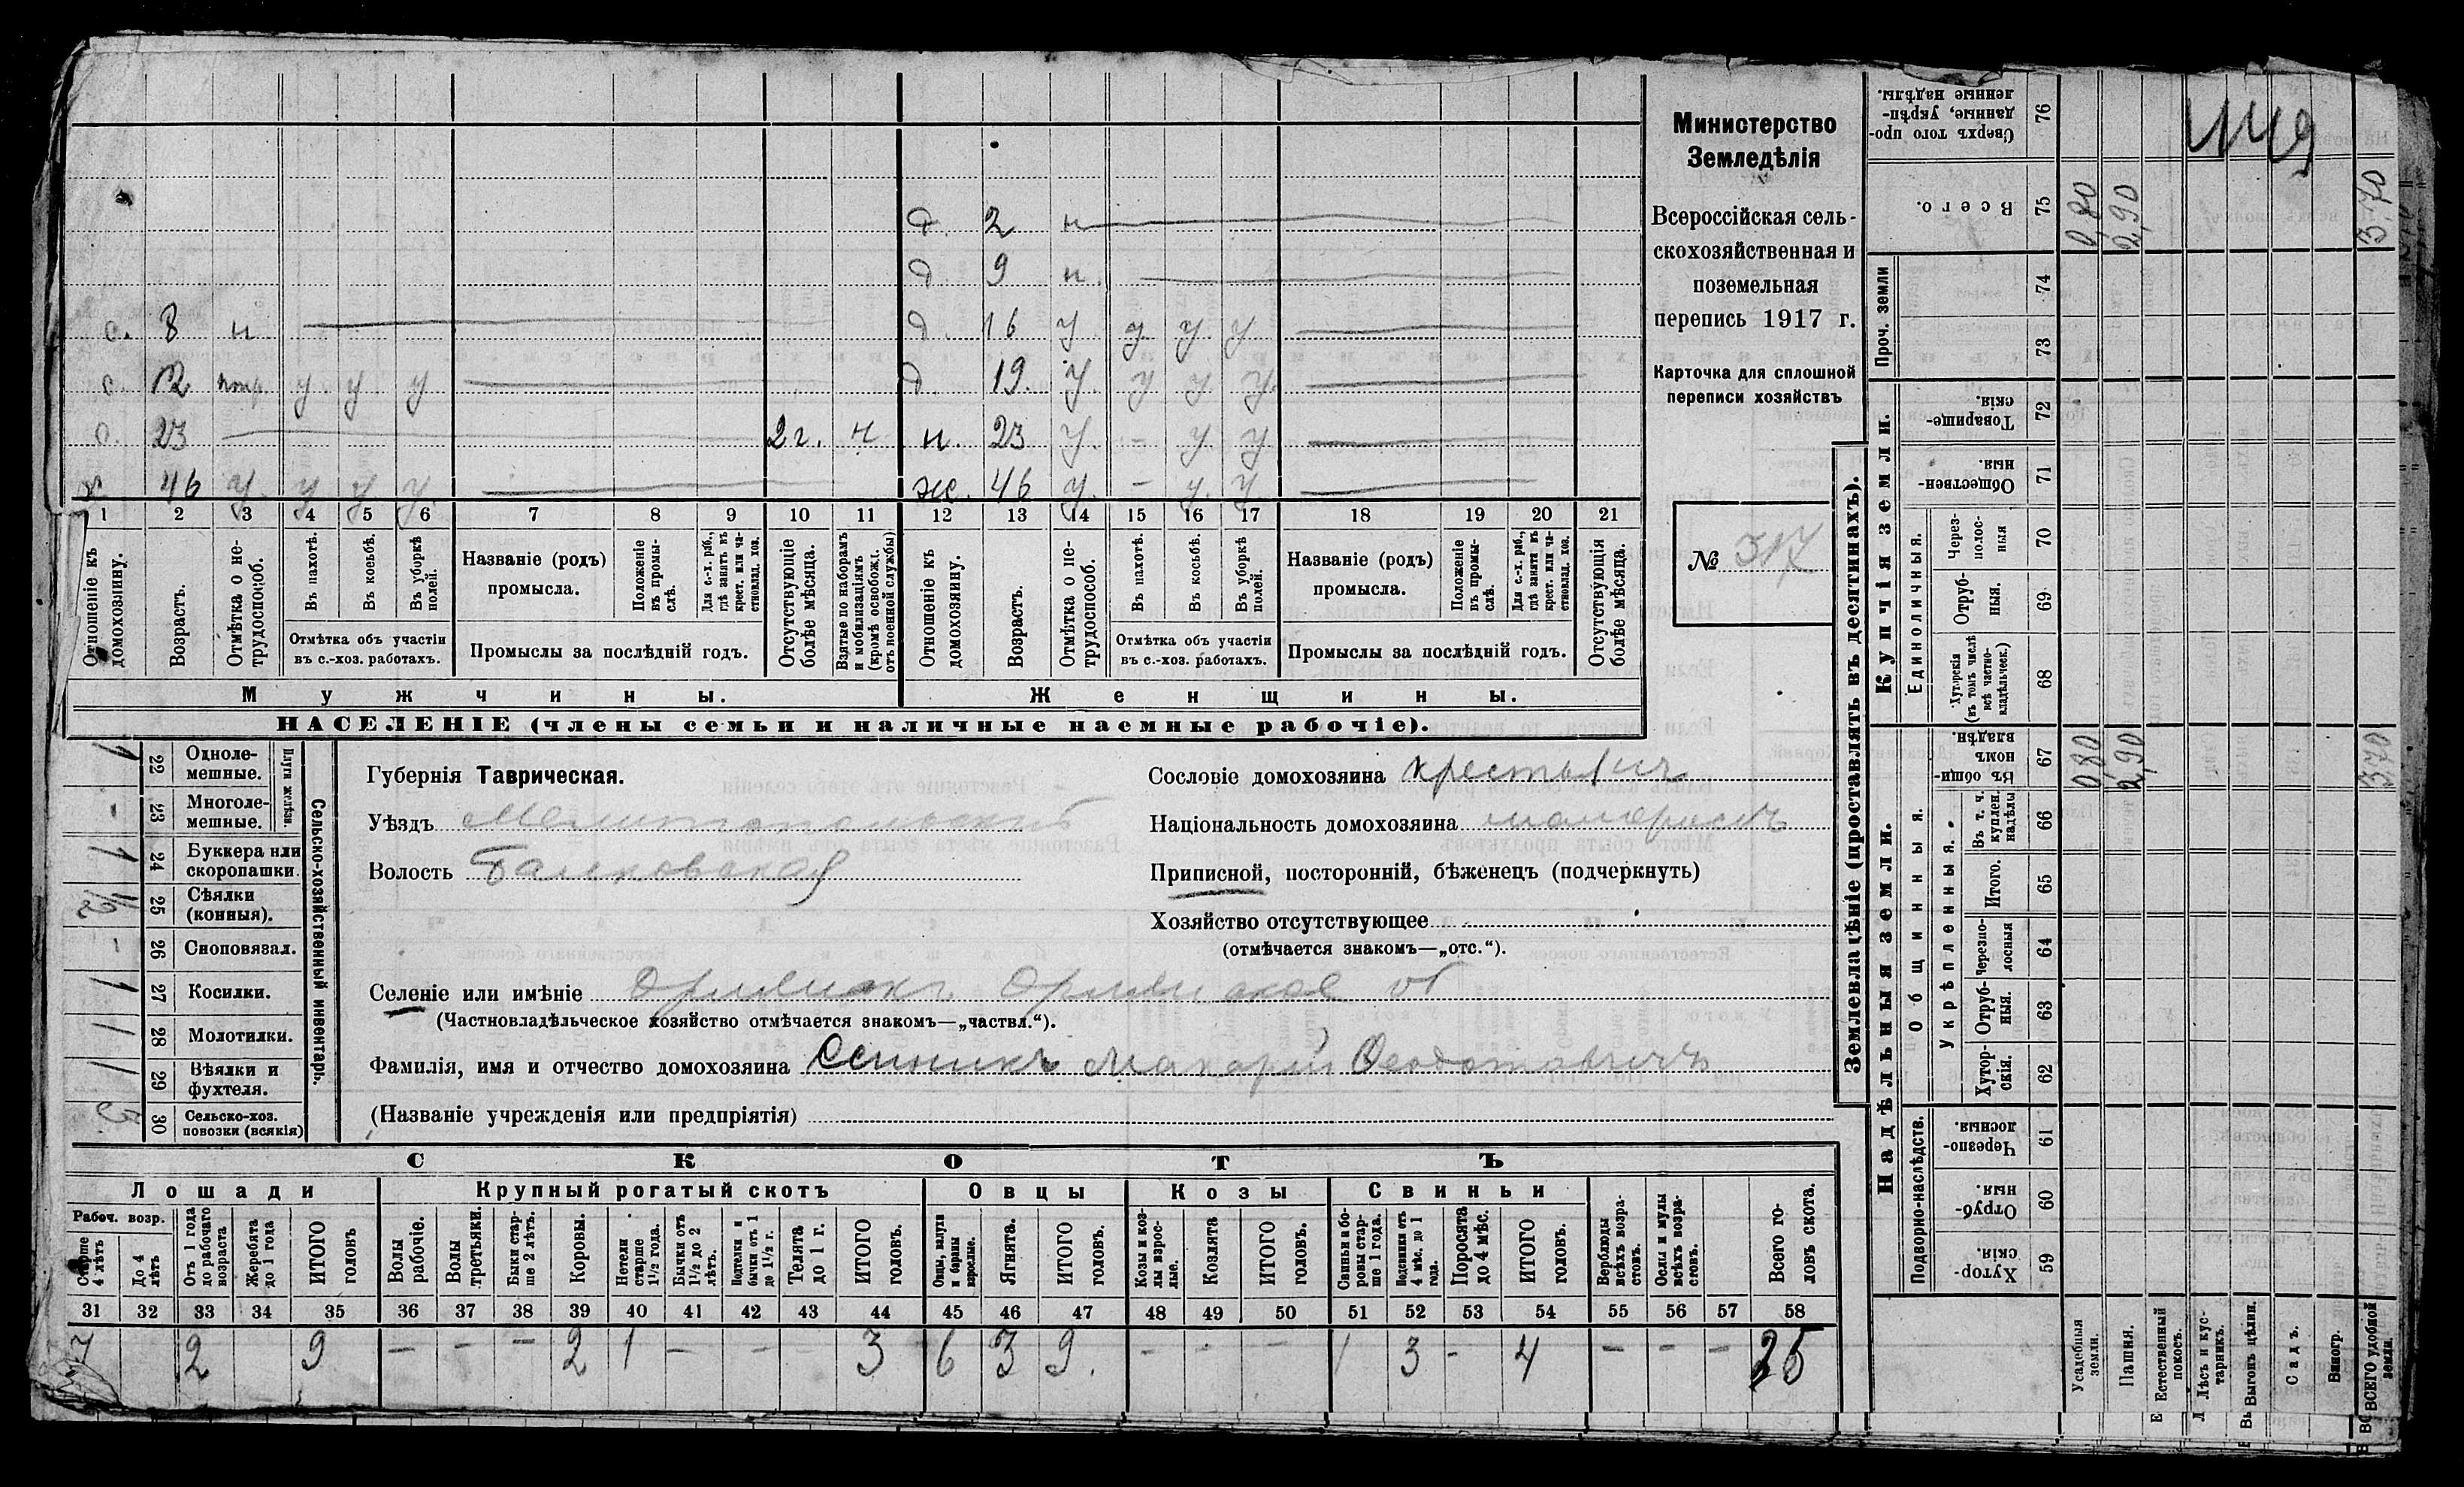 Министерство
Земледѣлія
Всероссійская сель-
скохозяйственная и
поземельная
перепись 1917 г.
Карточка для сплошной
переписи хозяйствъ
№ 317
1149
д. 2 н
д. 9 н.
с. 8 н д. 16 у. у. у. у
с. 12 у у у д. 19. у. у у. у.
с. 23 2 г. ч н. 23 у. - у у
х 46 у. у у у. ж. 46 у. - у. у.
1 2 3 4 5 6 7 8 9 10 11 12 13 14 15 16 17 18 19 20 21
Отношеніе къ домохозяину.
Возрастъ.
Отмѣтка о не-трудоспособ.
Въ пахотѣ.
Въ косьбѣ.
Въ уборкѣ полей.
Отмѣтка объ участіи
въ с.-хоз. работахъ.
Названіе (родъ)
промысла.
Положеніе въ промы-слѣ.
Для с.-х. раб., гдѣ занятъ въ крест. или ча-стновлад. хоз.
Промыслы за послѣдній годъ.
Отсутствующіе болѣе мѣсяца.
Взятые по наборамъ и мобилизаціямъ (кромѣ освобожд. отъ военной службы)
Отношеніе къ домохозяину.
Возрастъ.
Отмѣтка о не-трудоспособ.
Въ пахотѣ.
Въ косьбѣ.
Въ уборкѣ полей.
Отмѣтка объ участіи
въ с.-хоз. работахъ.
Названіе (родъ)
промысла.
Положеніе въ промы-слѣ.
Для с.-х. раб., гдѣ занята въ крест. или ча-стновлад. хоз.
Промыслы за послѣдній годъ.
Отсутствующія болѣе мѣсяца.
Мужчины. Женщины.
НАСЕЛЕНІЕ (члены семьи и наличные наемные рабочіе).
Сельско-хозяйственный инвентарь.
Плуги желѣзн.
1 22 Одноле-мешные.
- 23 Многоле-мешные.
1 24 Буккера или скоропашки.
1/2 25 Сѣялки (конныя).
- 26 Сноповязал.
1 27 Косилки.
1 28 Молотилки.
1 29 Вѣялки и фухтеля.
3 30 Сельско-хоз. повозки (всякія)
Губернія Таврическая.
Уѣздъ Мелитопольский
Волость Балковская
Сословіе домохозяина крестьянинъ
Національность домохозяина малороссъ
Приписной, посторонній, бѣженецъ (подчеркнуть)
Хозяйство отсутствующее
(отмѣчается знакомъ—„отс.“).
Селеніе или имѣніе
(Частновладѣльческое хозяйство отмѣчается знакомъ—„частвл.“).
Фамилія, имя и отчество домохозяина Сенникъ Макарий Феодотовичъ
(Названіе учрежденія или предпріятія)
СКОТЪ
Лошади Крупный рогатый скотъ Овцы Козы Свиньи
Рабоч. возр.
Старше 4 лѣтъ
До 4 лѣтъ
Отъ 1 года до рабочаго возраста
Жеребята до 1 года
ИТОГО головъ
Волы рабочіе.
Волы третьяки.
Быки стар-ше 2 лѣтъ.
Коровы.
Нетели старше 1½ года.
Бычки отъ 1½ до 2 лѣтъ.
Подтелки и бычки отъ 1 до 1½ г.
Телята до 1 г.
ИТОГО головъ.
Овцы, валухи и бараны взрослые.
Ягнята.
ИТОГО головъ.
Козы и коз-лы взрос-лые.
Козлята
ИТОГО головъ.
Свиньи и бо-ровы стар-ше 1 года.
Подсвинки отъ 4 мѣс. до 1 года.
Поросята до 4 мѣс.
ИТОГО головъ.
Верблюды всѣхъ возра-стовъ.
Ослы и мулы всѣхъ возра-стовъ.
Всего го-ловъ скота.
31 32 33 34 35 36 37 38 39 40 41 42 43 44 45 46 47 48 49 50 51 52 53 54 55 56 57 58
7 2 9 - - - 2 1 - - - 3 6 3 9. - - - 1 3 - 4 - - - 25
Землевладѣніе (проставлять въ десятинахъ).
Надѣльныя земли. Купчія земли. Проч. земли
Подворно-наслѣдств.
Общинныя.
Укрѣпленныя.
Единоличныя.
Хутор-скія. 59
Отруб-ныя. 60
Черезпо-лосныя 61
Хутор-скія. 62
Отруб-ныя. 63
Черезпо-лосныя 64
Итого. 65
Въ т. ч. куплен. надѣлы 66
Въ общин-номъ владѣн. 67 0,80 2,90 3,70
Хуторскія (въ томъ числѣ всѣ частно-владѣльческ.) 68
Отруб-ныя. 69
Через-полос-ныя 70
Обществен-ныя. 71
Товарище-скія. 72
73
74
Всего. 75 0,80 2,90 3.70
Сверхъ того про-данные, укрѣп-ленные надѣлы. 76
Усадебныя земли.
Пашня.
Естественный покосъ.
Лѣсъ и кус-тарникъ.
Выгонъ цѣлин.
Садъ.
Виногр.
ВСЕГО удобной земли.